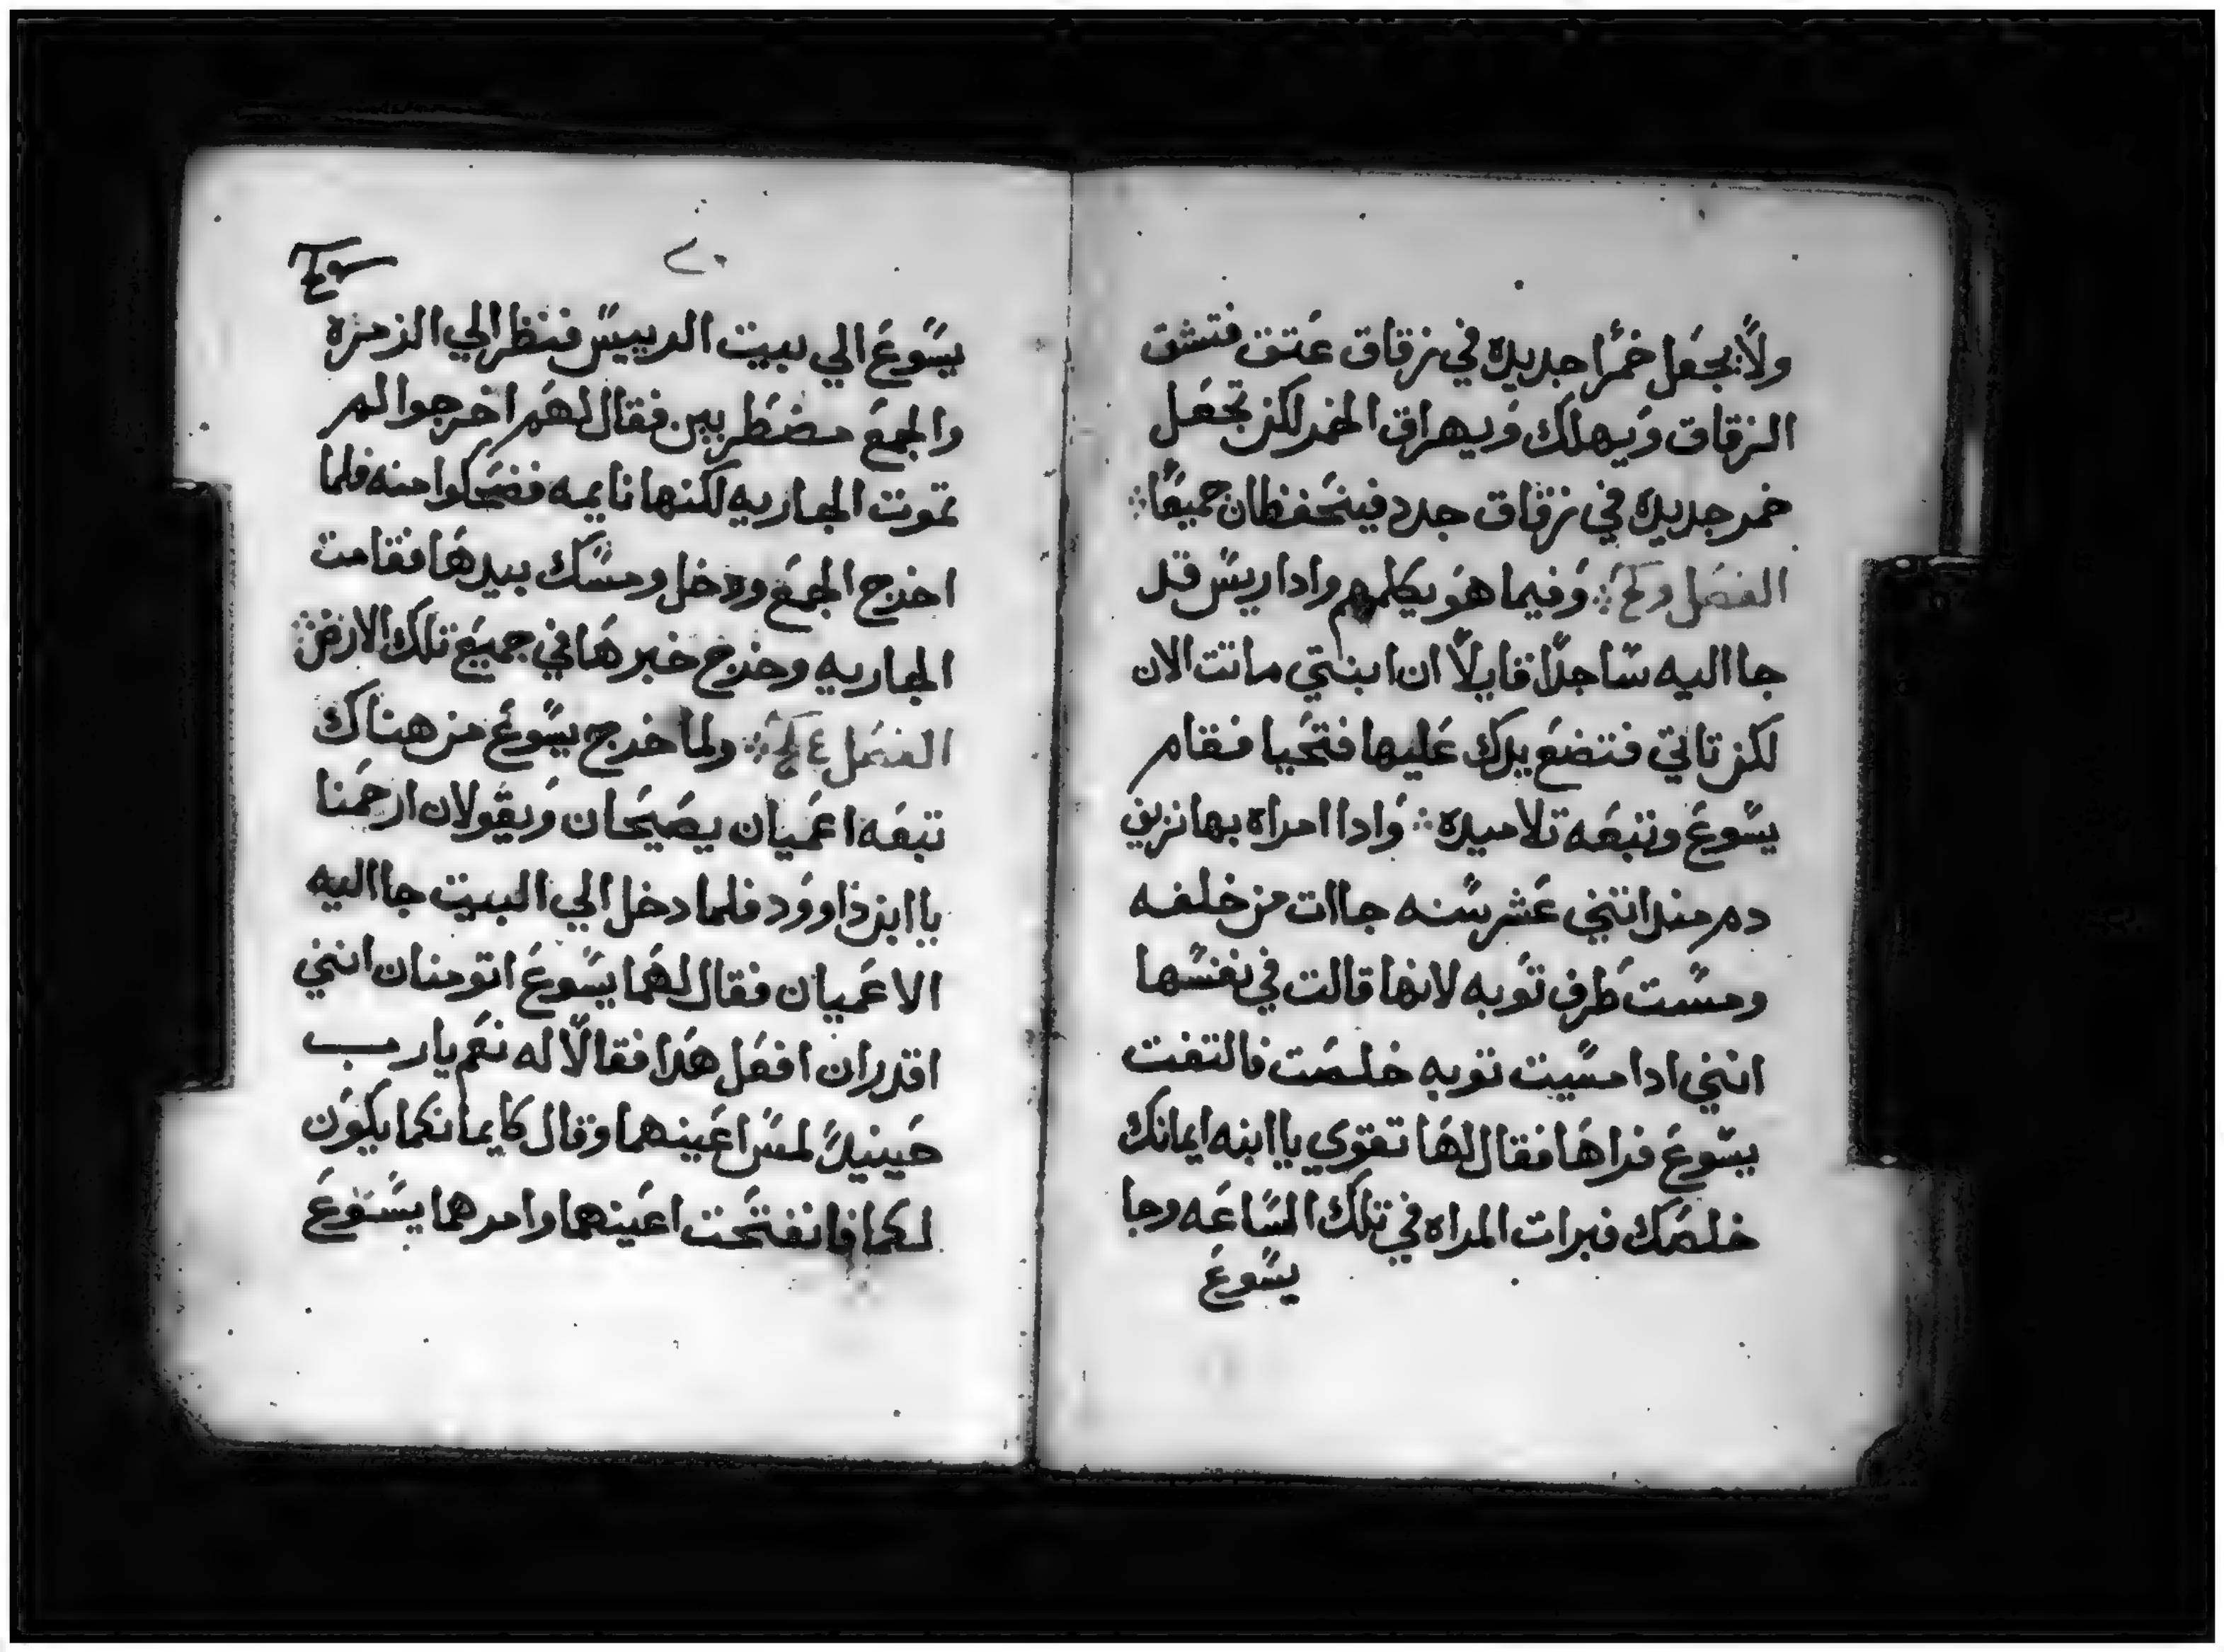 ولا يجعل خمرا جديده في زقاق عتق فتشق
الزقاق ويهلك ويهراق الخمر لكن تجعل
خمر جديده في زقاق جدد فينحفظان جميعا
الفصل وفيما هو يكلمهم وادا ريس قد
جا اليه ساجدا قايلا ان ابنتي ماتت الان
لكن تاتي فتضع يدك عليها فتحيا فقام
يسوع وتبعه تلاميده وادا امراه بها نزيف
دم مند اتني عشر سنه جاات من خلفه
ومست طرف توبه لانها قالت في نفسها
انني ادا مسيت توبه خلصت فالتفت
يسوع فراها فقال لها تقوي يا ابنه ايمانك
خلصك فبرات المراه في تلك الساعه وجا
يسوع
٢٠
يسوع الي بيت الرييس فنظر الي الزمره
والجمع مضطربين فقال لهم اخرجوا لم
تموت الجاريه لكنها نايمه فضحكوا منه فلما
اخرج الجمع ودخل ومسك بيدها فقامت
الجاريه وخرج خبرها في جميع تلك الارض
الفصل ولما خرج يسوع من هناك
تبعه اعميان يصيحان ويقولان ارحمنا
يا ابن داوود فلما دخل الي البيت جا اليه
الاعميان فقال لهما يسوع اتومنان انني
اقدر ان افعل هدا فقالا له نعم يا رب
حينيد لمس اعينهما وقال كايمانكما يكون
لكما فانفتحت اعينهما وامرهما يسوع